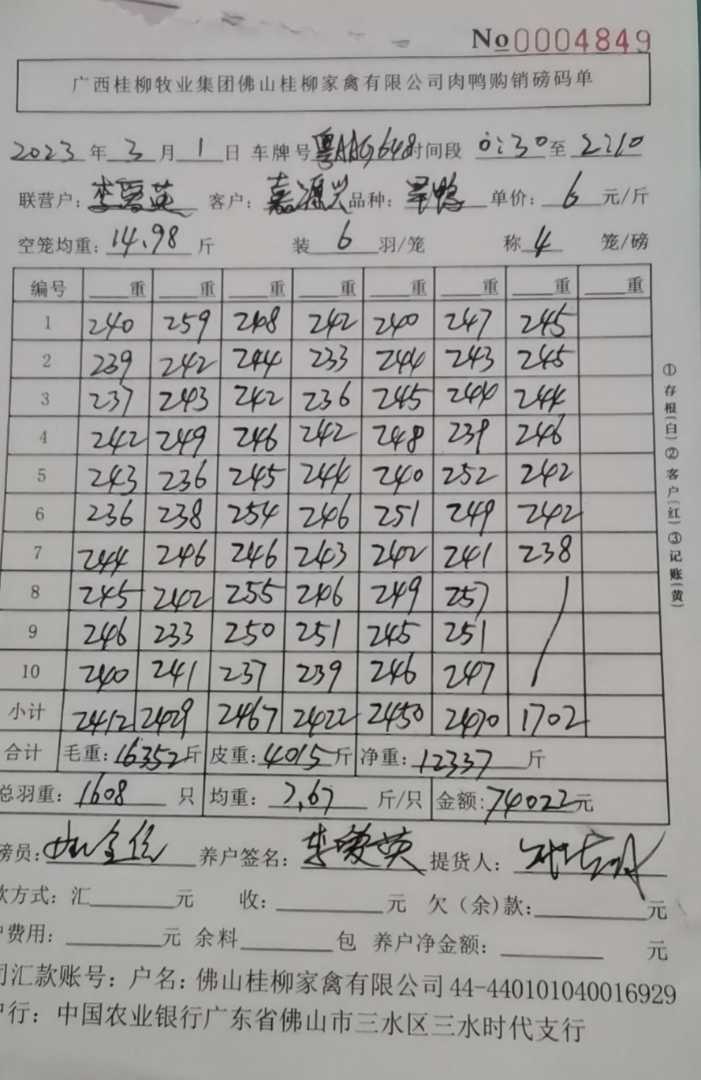 No 0004849
广西桂柳牧业集团佛山桂柳家禽有限公司肉鸭购销磅码单
2023 年 3 月 1 日 车牌号 粤AAG648 时间段 0:30 至 2:10
联营户: 李爱英 客户: 嘉源兴 品种: 旱鸭 单价: 6 元/斤
空笼均重: 14.98 斤 装 6 羽/笼 称 4 笼/磅
编号 ___重 ___重 ___重 ___重 ___重 ___重 ___重 ___重
1 240 259 248 242 240 247 245
2 239 242 244 233 244 243 245
3 237 243 242 236 245 244 244
4 242 249 246 242 248 239 246
5 243 236 245 244 240 252 242
6 236 238 254 246 251 249 242
7 244 246 246 243 242 241 238
8 245 242 255 246 249 257
9 246 233 250 251 245 251
10 240 241 237 239 246 247
小计 2412 2429 2467 2422 2450 2470 1702
合计 毛重: 16352 斤 皮重: 4015 斤 净重: 12337 斤
总羽重: 1608 只 均重: 7.67 斤/只 金额: 74022 元
磅员: 养户签名: 李爱英 提货人:
款方式: 汇______元 收: ______元 欠(余)款: ______元
户费用: ______元 余料______包 养户净金额: ______元
司汇款账号: 户名: 佛山桂柳家禽有限公司 44-440101040016929
户行: 中国农业银行广东省佛山市三水区三水时代支行
①存根(白)②客户(红)③记账(黄)